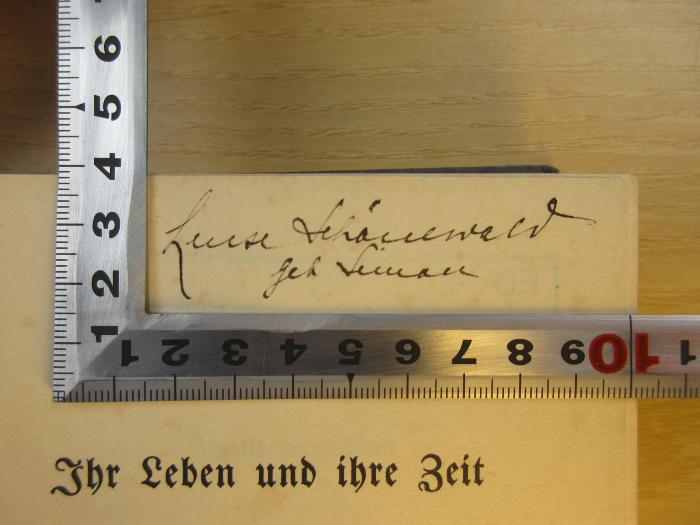 6
5
4
3
2
1
1 2 3 4 5 6 7 8 9 10 1
Luise Schönewald
geb Simon
Ihr Leben und ihre Zeit